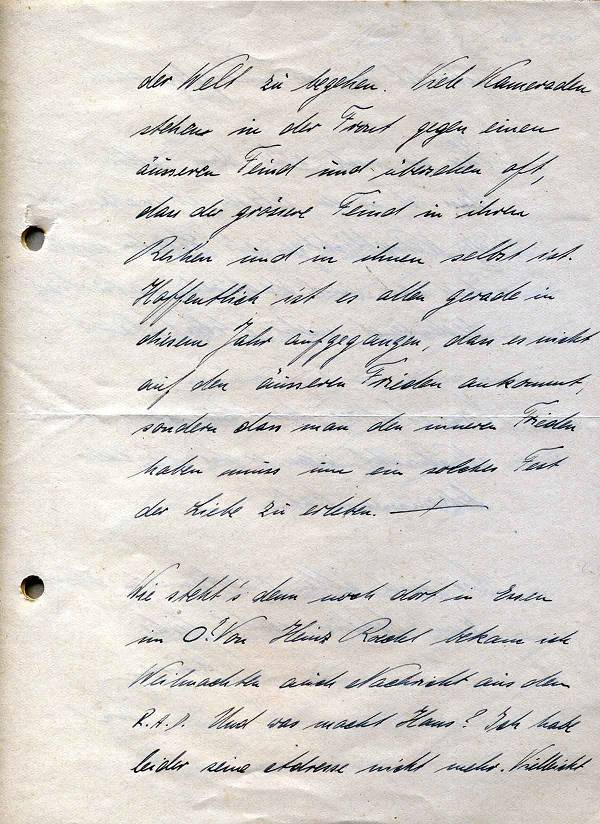 der Welt zu begehen. Viele Kameraden
stehen in der Front gegen einen
äusseren Feind und übersehen oft,
dass der grössere Feind in ihren
Reihen und in ihnen selbst ist.
Hoffentlich ist es allen gerade in
diesem Jahr aufgegangen, dass es nicht
auf den äusseren Frieden ankommt,
sondern dass man den inneren Frieden
haben muss um ein solches Fest
der Liebe zu erleben.
Wie steht's denn noch dort in Essen
im O? Von Heinz bekam ich
Weihnachten auch Nachricht aus dem
R.A.D. Und was macht Hans? Ich habe
leider seine Adresse nicht mehr. Vielleicht